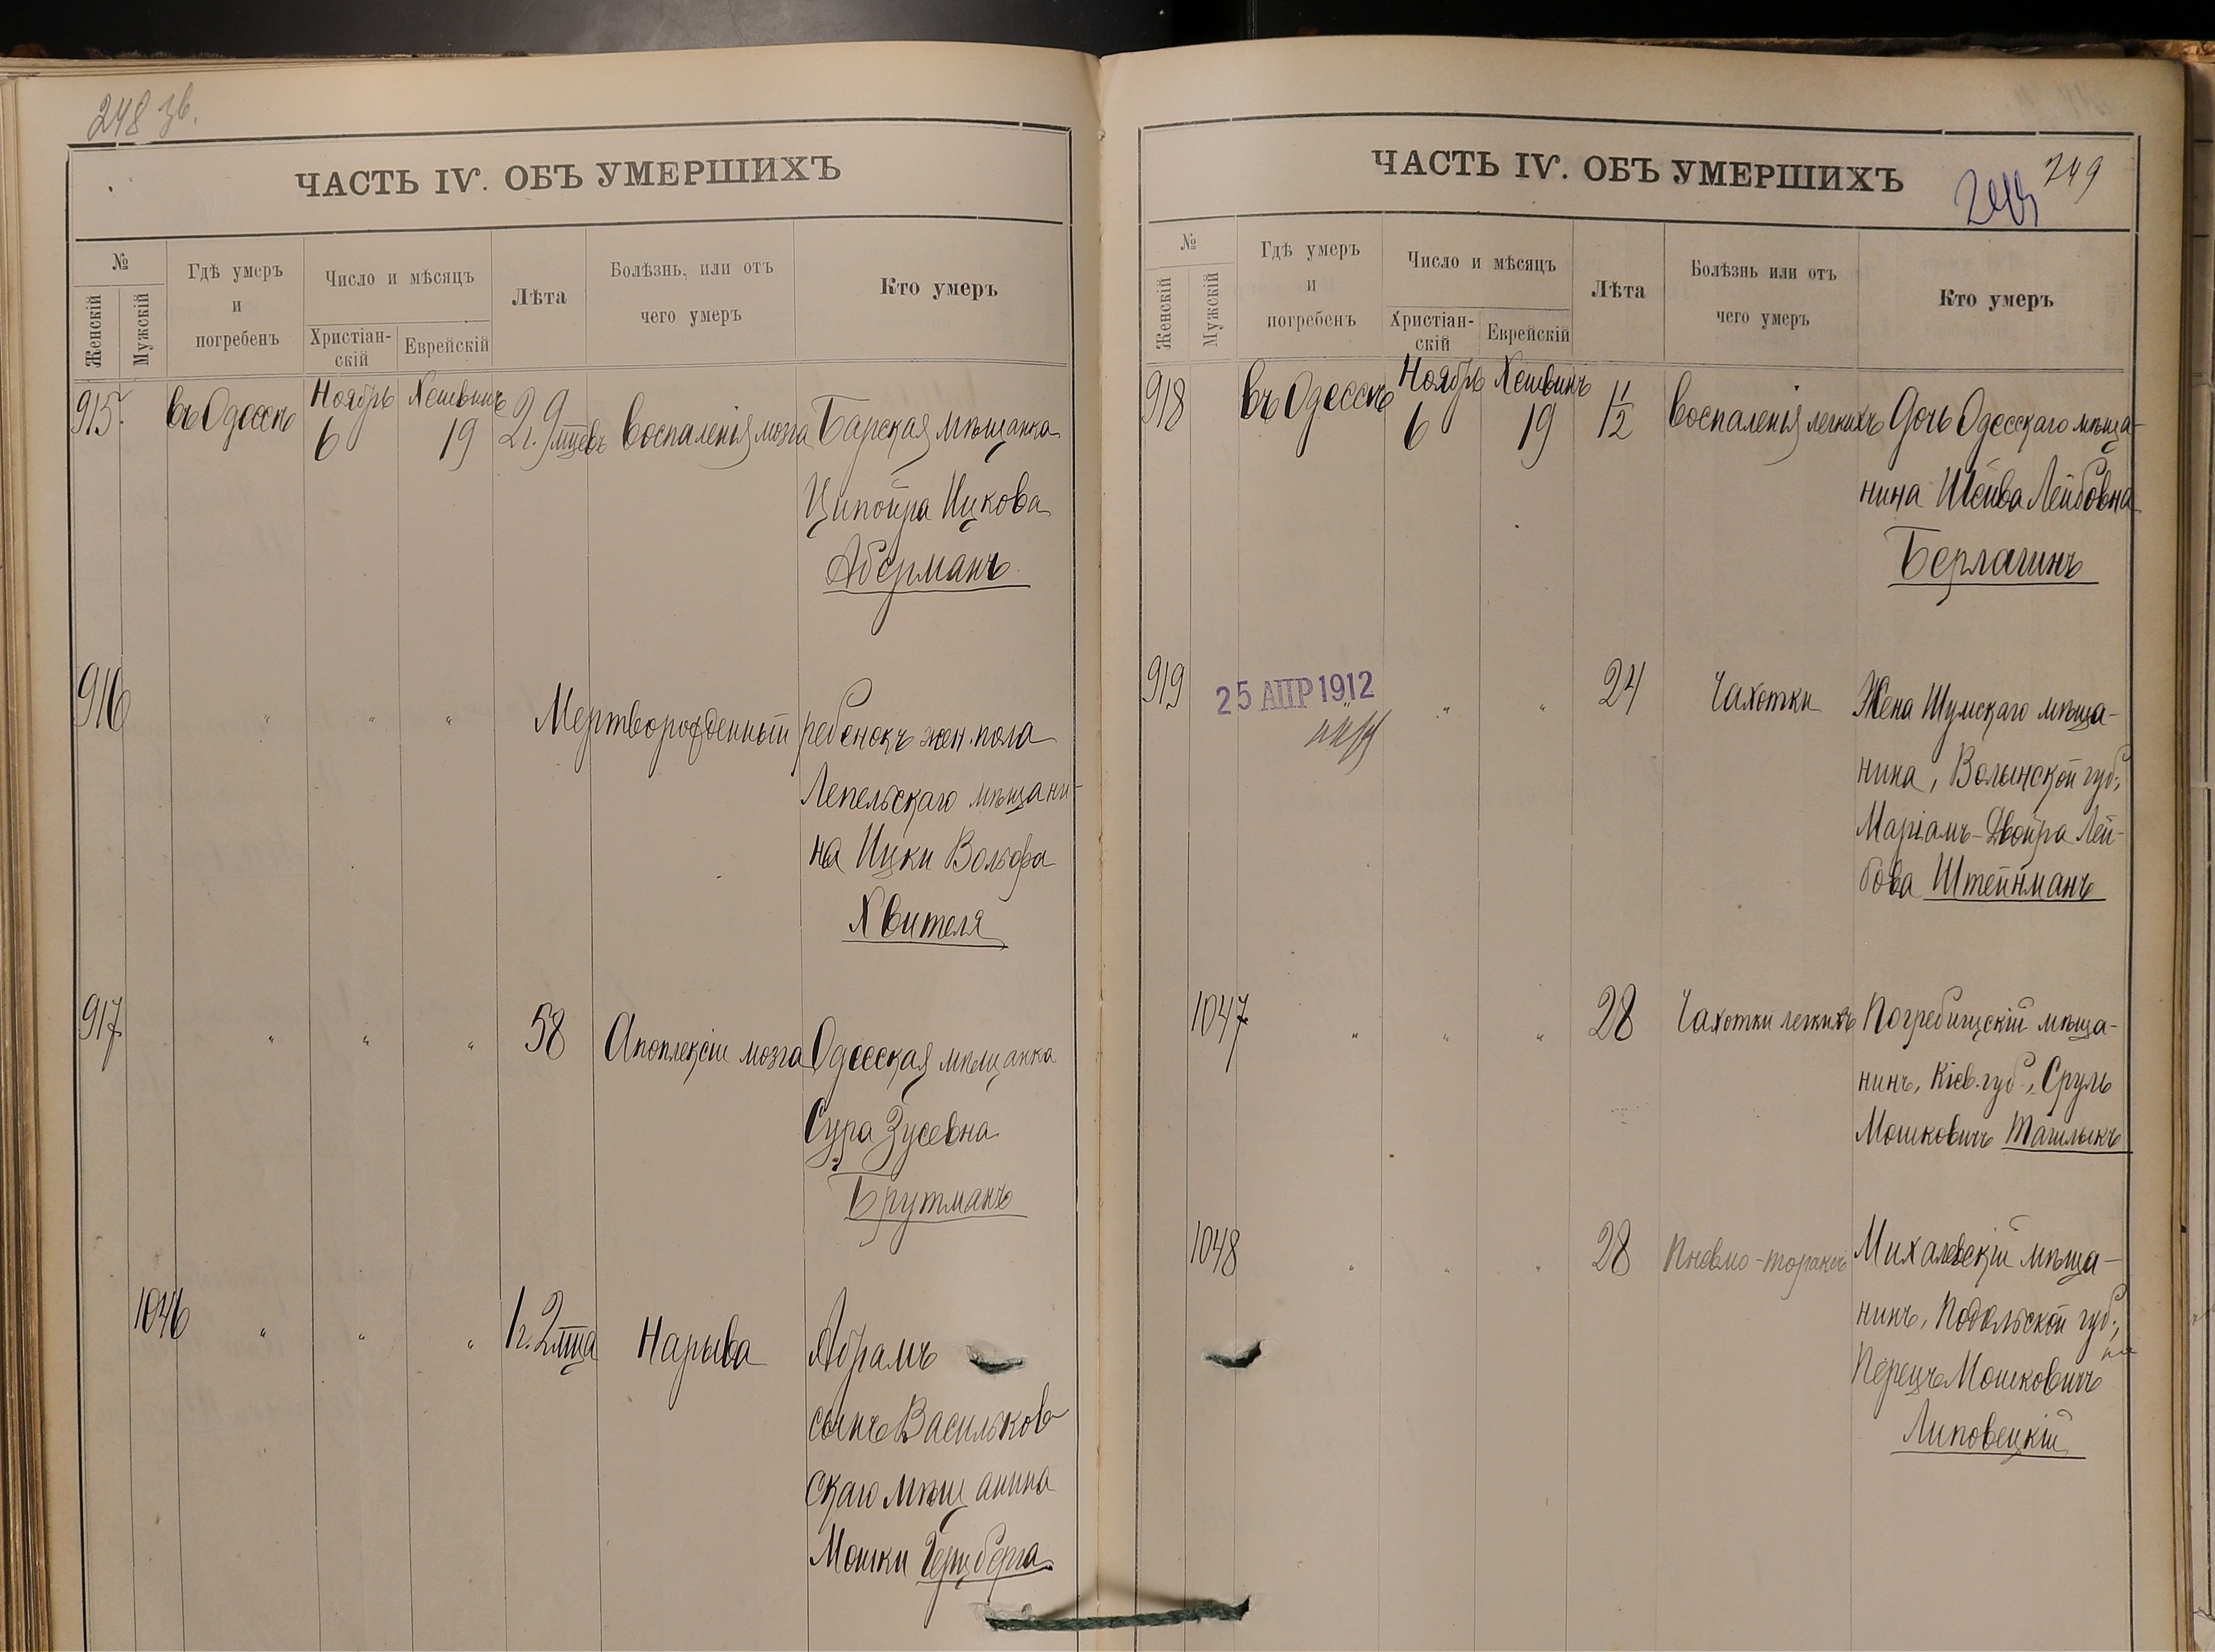 248 зв.
ЧАСТЬ IV. ОБЪ УМЕРШИХЪ
№
Женскій
Мужскій
Гдѣ умеръ
и
погребенъ
Число и мѣсяцъ
Христіан-
скій
Еврейскій
Лѣта
Болѣзнь, или отъ
чего умеръ
Кто умеръ
915. въ Одессѣ Ноябрь 6 Хешвинъ 19 2 г. 9 мцевъ Воспаленія мозга Барская мѣщанка
Ципойра Ицкова
Аберманъ
916 " " " Мертворожденный ребенокъ жен. пола
Лепельскаго мѣщани-
на Ицки Вольфа
Хвителя
917 " " " 58 Апоплексіи мозга Одесская мѣщанка
Сура Зусевна
Брутманъ
1046 " " " 1 г. 2 мца Нарыва Абрамъ
сынъ Васильков
скаго мѣщанина
Мошки Герцберга
ЧАСТЬ IV. ОБЪ УМЕРШИХЪ
249
№
Женскій
Мужскій
Гдѣ умеръ
и
погребенъ
Число и мѣсяцъ
Христіан-
скій
Еврейскій
Лѣта
Болѣзнь или отъ
чего умеръ
Кто умеръ
918 въ Одессѣ Ноябрь 6 Хешвинъ 19 1 1/2 Воспаленія легкихъ Дочь Одесскаго мѣща-
нина Шейва Лейбовна
Берлагинъ
919 25 АПР 1912 " " 24 Чахотки Жена Шумскаго мѣща-
нина, Волынской губ.,
Маріамъ-Двойра Лей-
бова Штейнманъ
1047 " " " 28 Чахотки легкихъ Погребищскій мѣща-
нинъ, Кіев. губ., Сруль
Мошковичъ Тагилыкъ
1048 " " " 28 Пневмо-тораксъ Михалевскій мѣща-
нинъ, Подольской губ.,
Перецъ Мошковичъ
Липовецкій